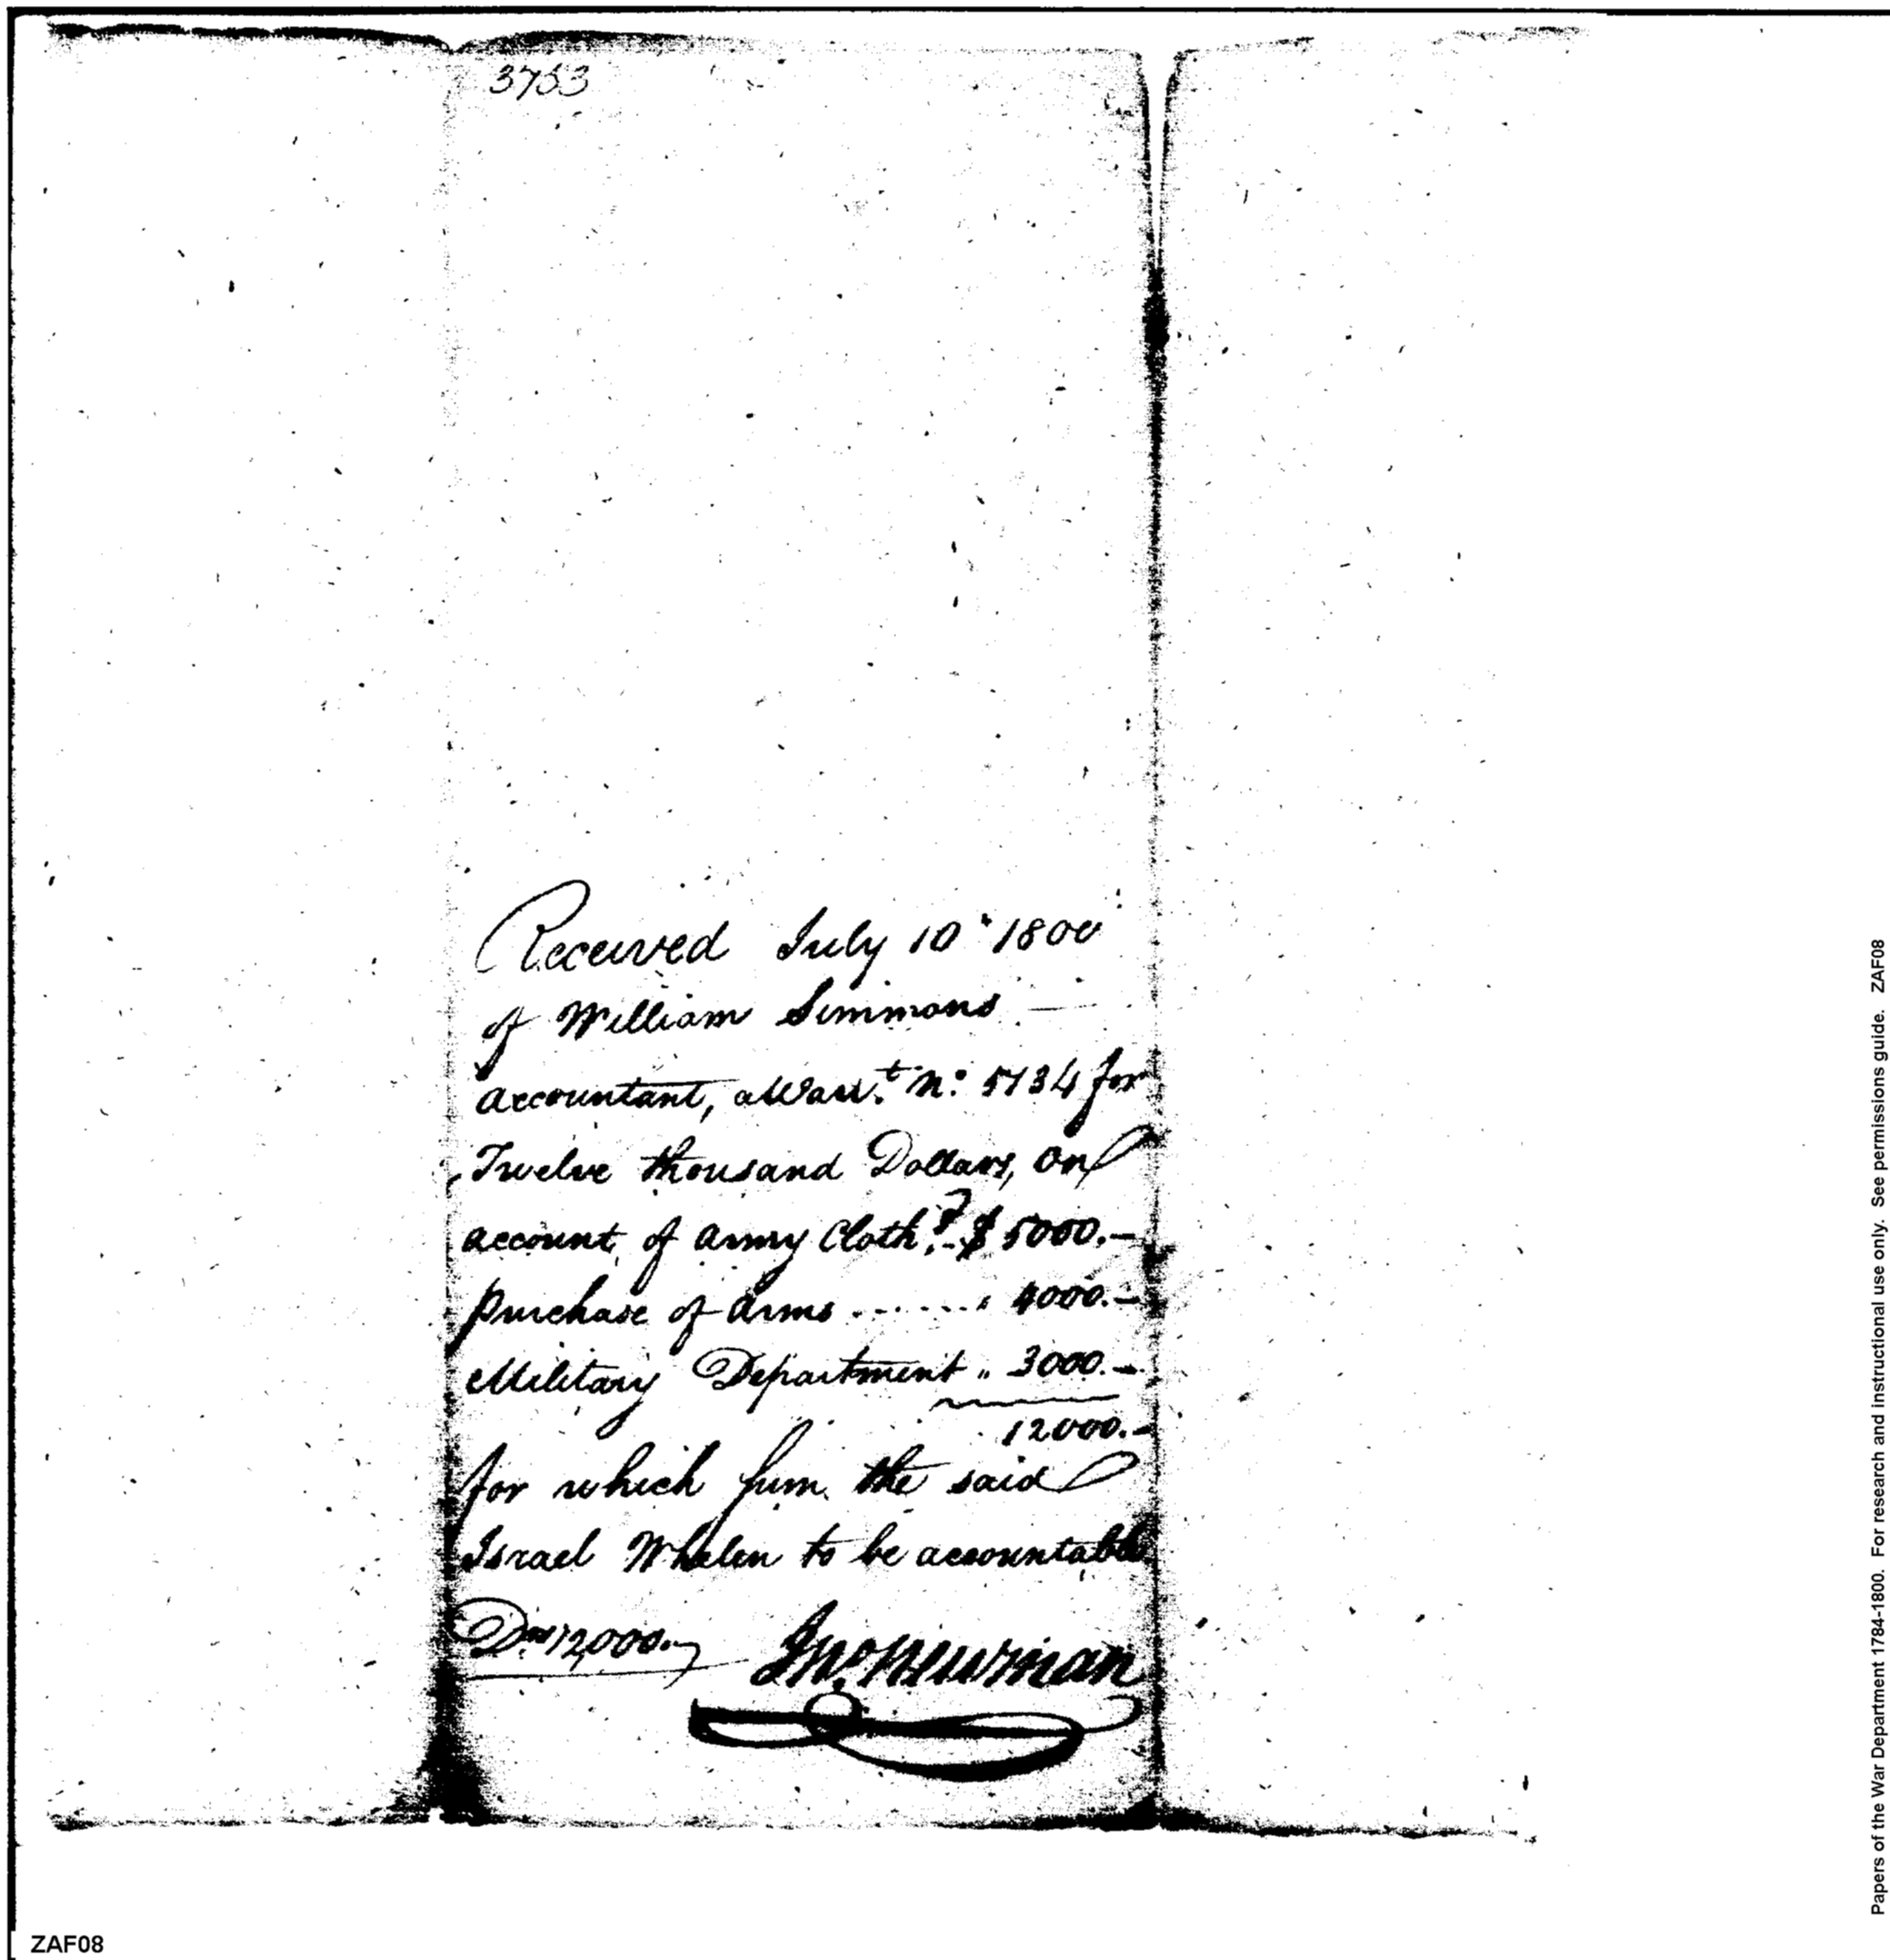 3753
Received July 10th 1800
of William Simmons
accountant, a Warrt. No. 5134 for
Twelve thousand Dollars, on
account of army Clothg. $ 5000.-
purchase of Arms ....... " 4000.-
Military Department " 3000.-
12000.-
for which sum the said
Israel Whelen to be accountable
Drs 12,000.-
Jno. Newman
ZAF08
Papers of the War Department 1784-1800. For research and instructional use only. See permissions guide. ZAF08